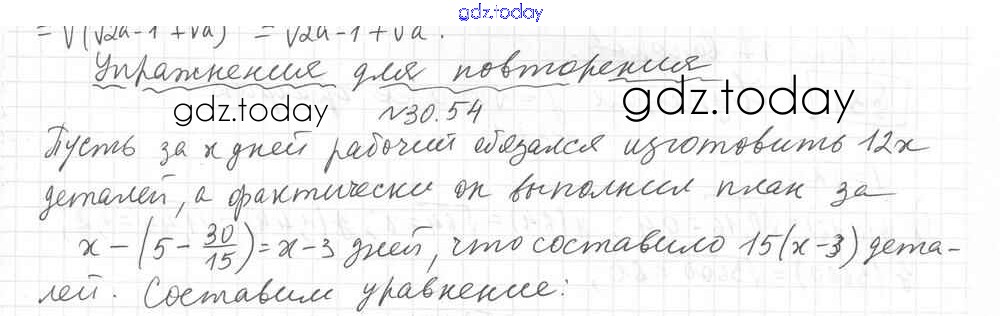 gdz.today
= √(√2a-1 + √a) = √2a-1 + √a.
Упражнения для повторения
gdz.today
gdz.today
№30.54
Пусть за x дней рабочий обязался изготовить 12x
деталей, а фактически он выполнил план за
x - (5 - 30/15) = x - 3 дней, что составило 15(x-3) дета-
лей. Составим уравнение: